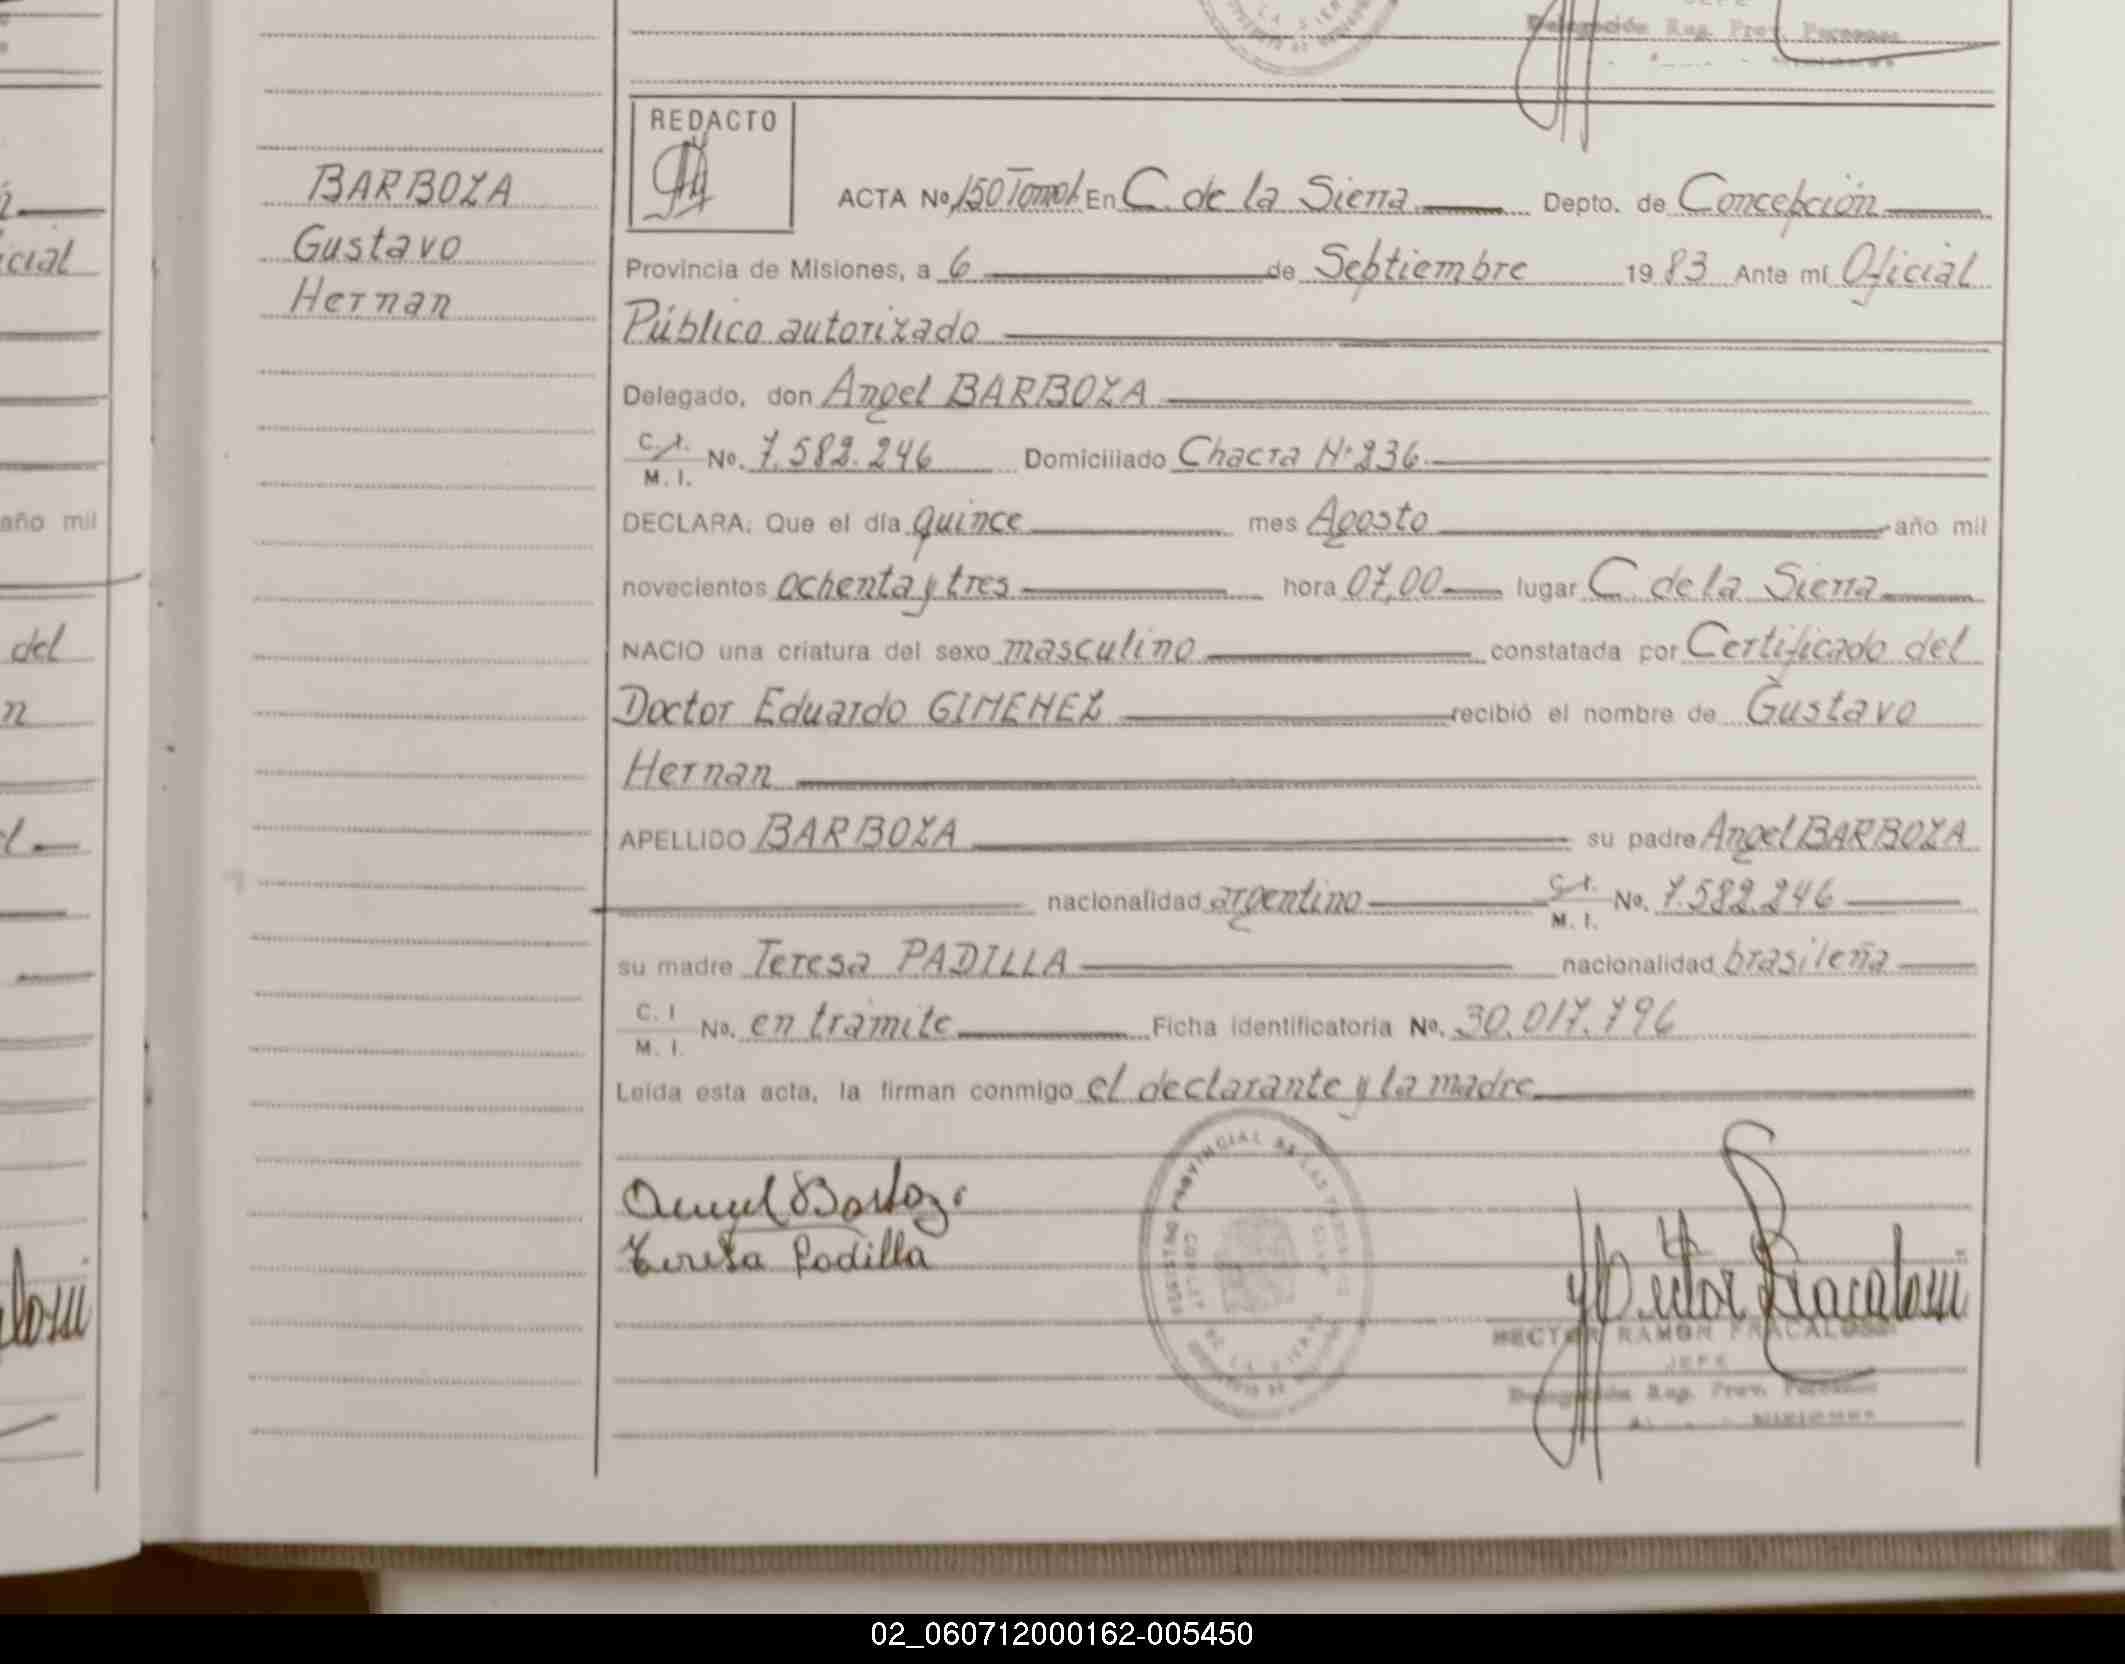 Delegación Reg. Prov. Personas
REDACTO
BARBOZA
Gustavo
Hernan
ACTA No. 150 Tomo I En C. de la Sierra Depto. de Concepción
Provincia de Misiones, a 6 de Septiembre 1983 Ante mí Oficial
Público autorizado
Delegado, don Angel BARBOZA
C.I.
M. I. No. 7.582.246 Domiciliado Chacra N° 236
DECLARA: Que el día quince mes Agosto año mil
novecientos ochenta y tres hora 07,00 lugar C. de la Sierra
NACIO una criatura del sexo masculino constatada por Certificado del
Doctor Eduardo GIMENEZ recibió el nombre de Gustavo
Hernan
APELLIDO BARBOZA su padre Angel BARBOZA
nacionalidad argentino C.I.
M. I. No. 7.582.246
su madre Teresa PADILLA nacionalidad brasileña
C. I
M. I. No. en trámite Ficha identificatoria No. 30.017.796
Leída esta acta, la firman conmigo el declarante y la madre
Angel Barboza
Teresa Padilla
Hector Fracalossi
HECTOR RAMON FRACALOSSI
JEFE
Delegación Reg. Prov. Personas
MISIONES
cial
año mil
del
n
02_060712000162-005450